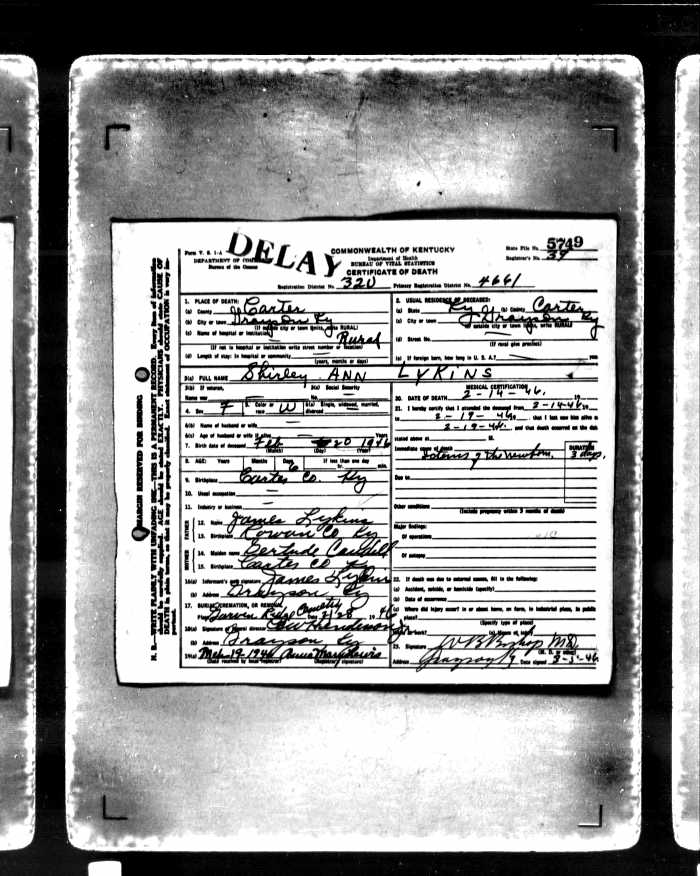 DELAY
Form V. S. 1-A
DEPARTMENT OF COM
Bureau of the Census
COMMONWEALTH OF KENTUCKY
Department of Health
BUREAU OF VITAL STATISTICS
CERTIFICATE OF DEATH
State File No. 5749
Registrar's No. 39
Registration District No. 320 Primary Registration District No. 4661
1. PLACE OF DEATH:
(a) County Carter
(b) City or town Grayson Ky
(If outside city or town limits, write RURAL)
(c) Name of hospital or institution Rural
(If not in hospital or institution write street number or location)
(d) Length of stay: in hospital or community
(years, months or days)
2. USUAL RESIDENCE OF DECEASED:
(a) State Ky (b) County Carter
(c) City or town Grayson Ky
(If outside city or town limits, write RURAL)
(d) Street No.
(If rural give precinct)
(e) If foreign born, how long in U. S. A.? years
3(a) FULL NAME Shirley ANN LYKINS
3(b) If veteran, 3(c) Social Security
Name war No.
4. Sex F 5. Color or race W 6(a) Single, widowed, married, divorced
6(b) Name of husband or wife
6(c) Age of husband or wife if alive Years
7. Birth date of deceased Feb 20 1946
(Month) (Day) (Year)
8. AGE: Years Months Days If less than one day
6 hr. min.
9. Birthplace Carter Co. Ky
10. Usual occupation
11. Industry or business
FATHER
12. Name James Lykins
13. Birthplace Rowan Co Ky
MOTHER
14. Maiden name Gertrude
15. Birthplace Carter Co Ky
16(a) Informant's own signature James Lykins
(b) Address Grayson Ky
17. BURIAL, CREMATION, OR REMOVAL
Place Garvin Ridge Cemetery Date 2/28 1946
18(a) Signature of funeral director Henderson
(b) Address Grayson Ky
19(a) Mch-19-1946
(Date received by local registrar) (Registrar's signature)
MEDICAL CERTIFICATION
20. DATE OF DEATH 2-14-46. 19
21. I hereby certify that I attended the deceased from 2-14-46 19
to 2-19-46 19 that I last saw him alive
2-19-46. and that death occurred on the date
stated above at M.
Immediate cause of death DURATION
Icterus of the newborn. 3 days.
Due to
Other conditions
(Include pregnancy within 3 months of death)
Major findings:
Of operations
Of autopsy
22. If death was due to external causes, fill in the following:
(a) Accident, suicide, or homicide (specify)
(b) Date of occurrence
(c) Where did injury occur? in or about home, on farm, in industrial place, in public
place?
(Specify type of place)
23. Signature W B Bishop M.D.
(M. D. or other)
Address Grayson Ky. Date signed
MARGIN RESERVED FOR BINDING
N. B.—WRITE PLAINLY WITH UNFADING INK—THIS IS A PERMANENT RECORD. Every item of information
should be carefully supplied. AGE should be stated EXACTLY. PHYSICIANS should state CAUSE OF
DEATH in plain terms, so that it may be properly classified. Exact statement of OCCUPATION is very im-
portant.